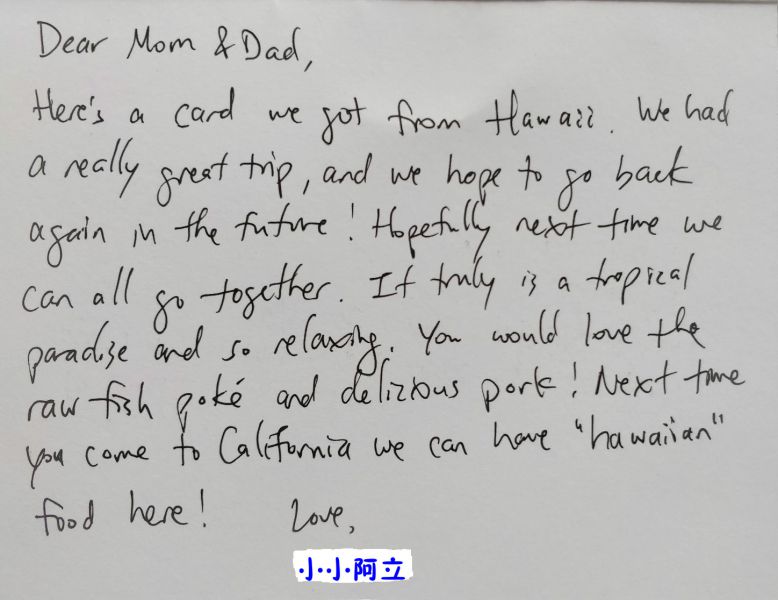 Dear Mom & Dad,
Here's a card we got from Hawaii. We had
a really great trip, and we hope to go back
again in the future! Hopefully next time we
can all go together. It truly is a tropical
paradise and so relaxing. You would love the
raw fish poké and delicious pork! Next time
you come to California we can have "hawaiian"
food here! Love,
小小阿立